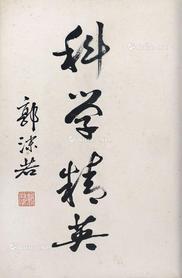 科学精英
郭沫若